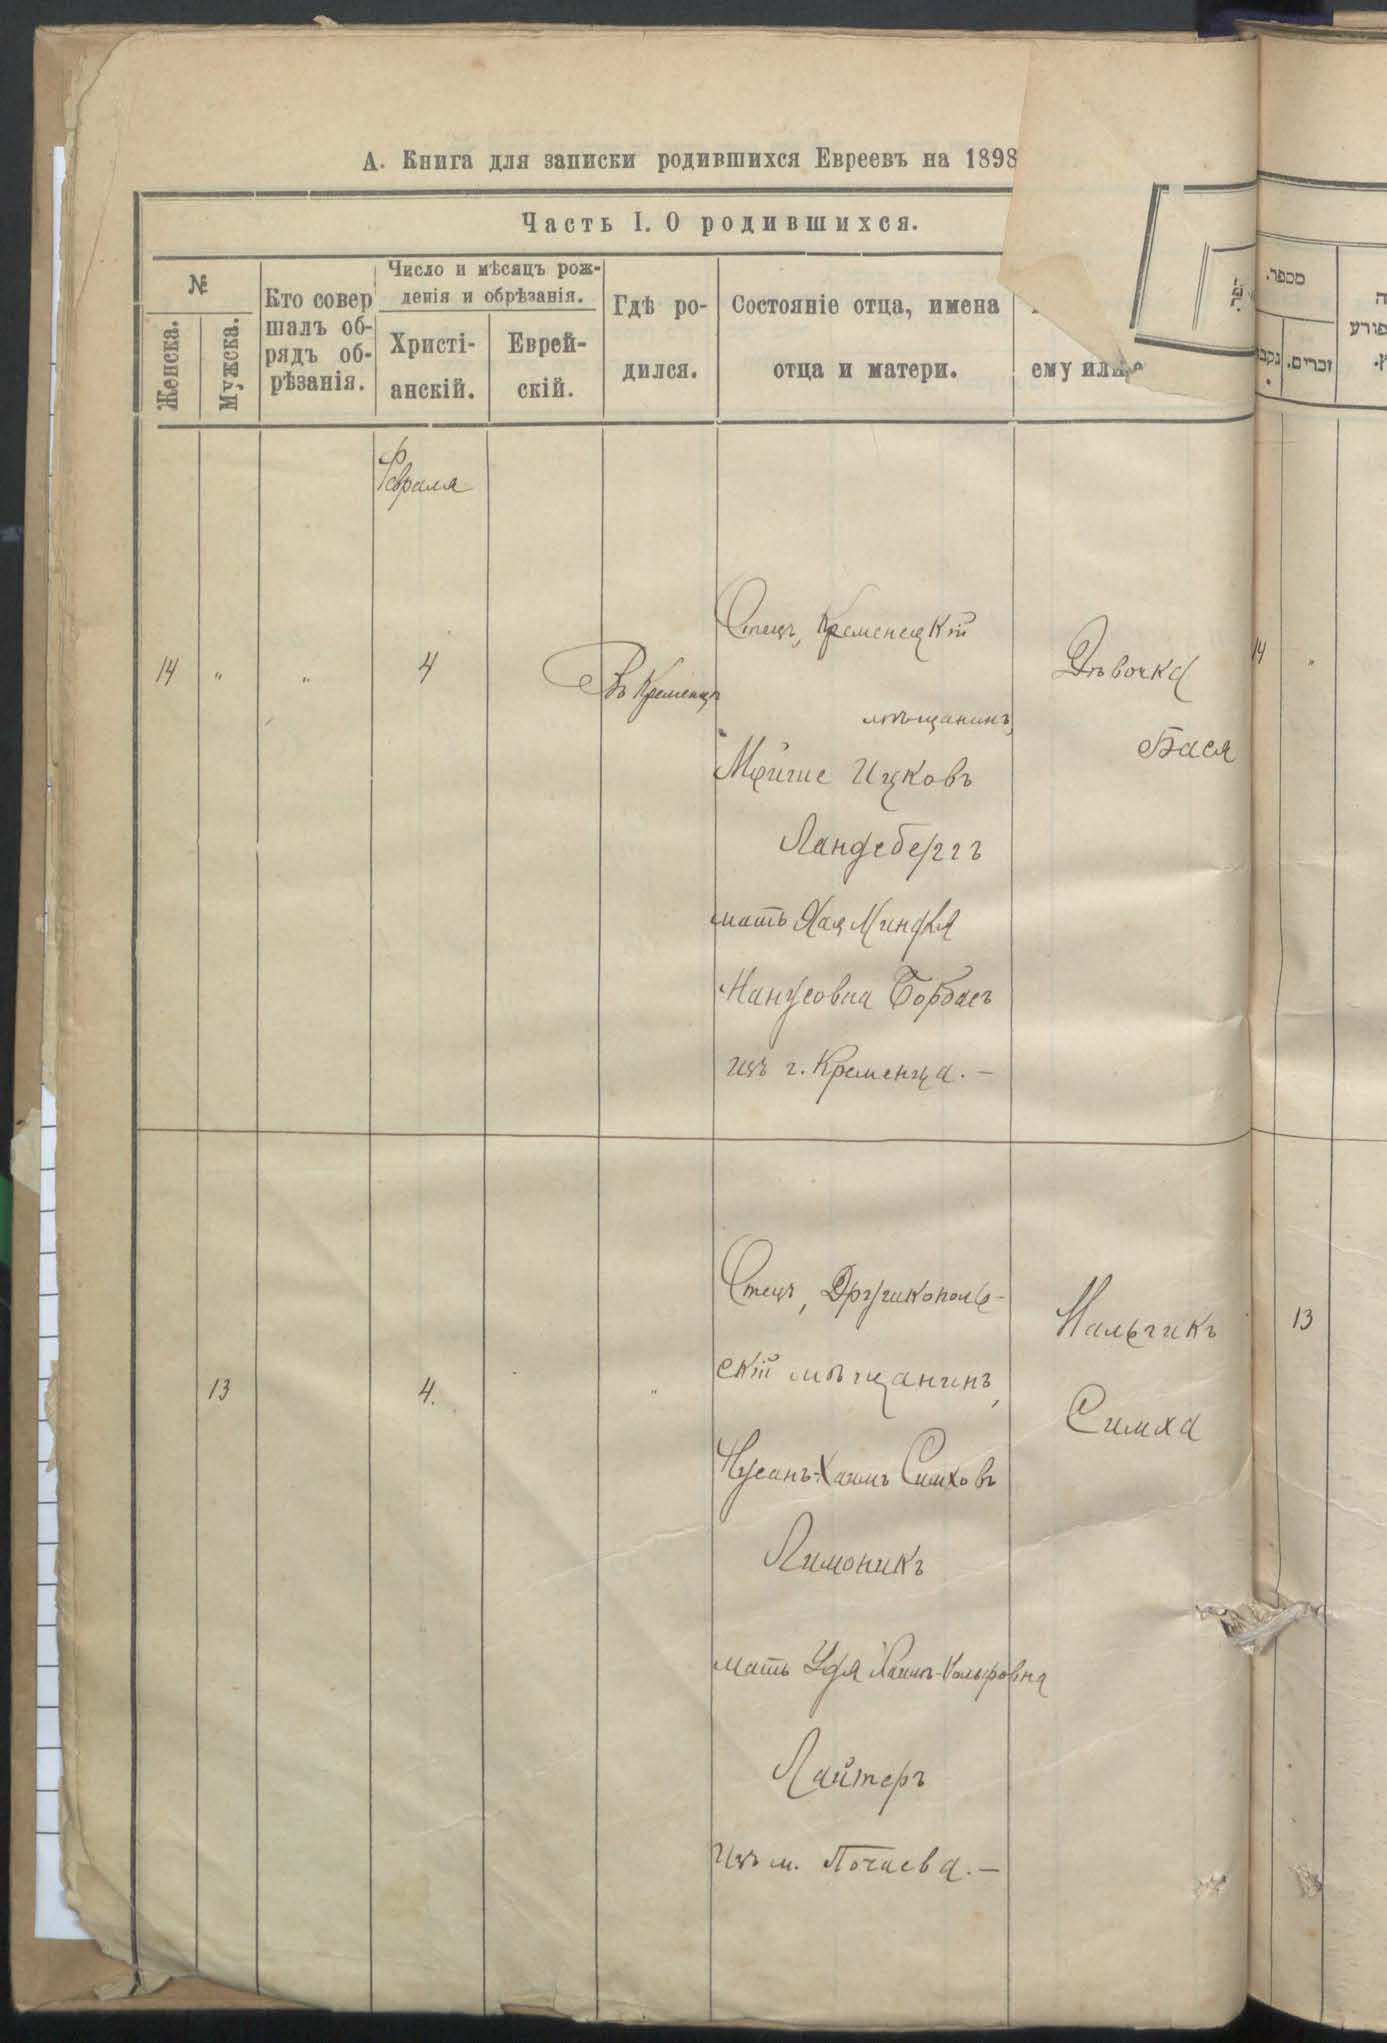 А. Книга для записки родившихся Евреевъ на 1898
Часть I. О родившихся.
№
Женска.
Мужска.
Кто совер
шалъ об-
рядъ об-
рѣзанія.
Число и мѣсяцъ рож-
денія и обрѣзанія.
Христі-
анскій.
Еврей-
скій.
Гдѣ ро-
дился.
Состояніе отца, имена
отца и матери.
ему или
מספר.
זכרים.
Февраля
14 " " 4 Въ Кременцѣ
Отецъ, Кременецкій
мѣщанинъ,
Мойше Ицковъ
Ландсбергъ
мать Хая Миндля
Нанусовна Борбасъ
изъ г. Кременца. –
Дѣвочка
Бася
14 "
13 4. "
Отецъ, Дружкополь-
скій мѣщанинъ,
Нусанъ-Хаимъ Симховъ
Лимоникъ
мать Удя Хаимъ-Вольфовна
Лайтеръ
изъ м. Почаева. –
Мальчикъ
Симха
13